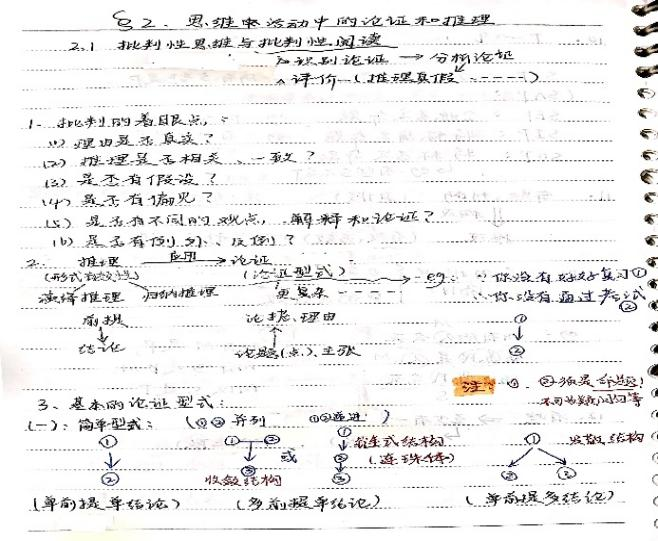 §2. 思维与活动中的论证和推理
2.1 批判性思维与批判性阅读
识别论证 → 分析论证
评价—(推理真假 -----)
1. 批判的着眼点:
(1) 理由是否真实?
(2) 推理是否相关、一致?
(3) 是否有假设?
(4) 是否有漏洞?
(5) 是否有不同的观点、解释和论证?
(6) 是否有例外、反例?
2. 推理 应用→ 论证
(形式有效性) (论证型式) → eg: ∵你没有好好复习①
演绎推理 归纳推理 更复杂 ∴你没有通过考试②
前提 论据、理由 ①
结论 论题(点)、主张 ②
注: ①、②须是命题!
不可为疑问句等
3、基本的论证型式:
(一): 简单型式: (①② 并列 ①②递进)
① ①—② 或 ① 链式结构 ① 发散结构
② ③ ② (连珠体) ② ③
收敛结构 ③
(单前提单结论) (多前提单结论) (单前提多结论)